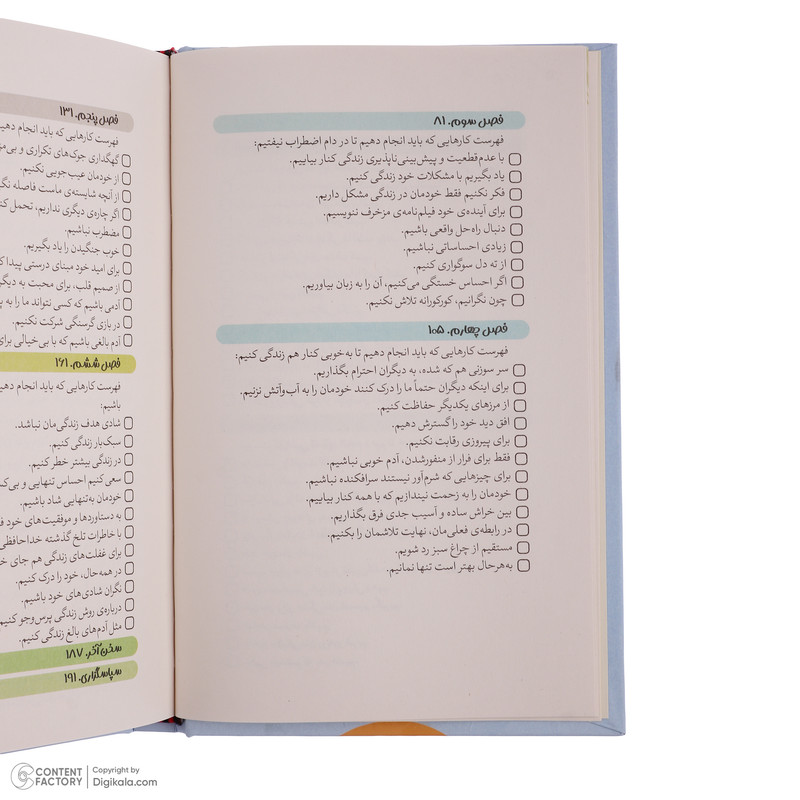 فصل سوم. ۸۱
فهرست کارهایی که باید انجام دهیم تا در دام اضطراب نیفتیم:
با عدم‌قطعیت و پیش‌بینی‌ناپذیری زندگی کنار بیاییم.
یاد بگیریم با مشکلات خود زندگی کنیم.
فکر نکنیم فقط خودمان در زندگی مشکل داریم.
برای آینده‌ی خود فیلم‌نامه‌ی مزخرف ننویسیم.
دنبال راه‌حل واقعی باشیم.
زیادی احساساتی نباشیم.
از ته دل سوگواری کنیم.
اگر احساس خستگی می‌کنیم، آن را به زبان بیاوریم.
چون نگرانیم، کورکورانه تلاش نکنیم.
فصل چهارم. ۱۰۵
فهرست کارهایی که باید انجام دهیم تا به‌خوبی کنار هم زندگی کنیم:
سر سوزنی هم که شده، به دیگران احترام بگذاریم.
برای اینکه دیگران حتماً ما را درک کنند خودمان را به آب‌وآتش نزنیم.
از مرزهای یکدیگر حفاظت کنیم.
افق دید خود را گسترش دهیم.
برای پیروزی رقابت نکنیم.
فقط برای فرار از منفورشدن، آدم خوبی نباشیم.
برای چیزهایی که شرم‌آور نیستند سرافکنده نباشیم.
خودمان را به زحمت نیندازیم که با همه کنار بیاییم.
بین خراش ساده و آسیب جدی فرق بگذاریم.
در رابطه‌ی فعلی‌مان، نهایت تلاشمان را بکنیم.
مستقیم از چراغ سبز رد شویم.
به‌هرحال بهتر است تنها نمانیم.
فصل پنجم. ۱۳۱
فهرست کارهایی که باید انجام دهیم
گهگداری جوک‌های تکراری و بی‌مز
از خودمان عیب‌جویی نکنیم.
از آنچه شایسته‌ی ماست فاصله
اگر چاره‌ی دیگری نداریم، تحمل
مضطرب نباشیم.
خوب جنگیدن را یاد بگیریم.
برای امید خود مبنای درستی پیدا
از صمیم قلب، برای محبت به
آدمی باشیم که کسی نتواند ما را به
در بازی گرسنگی شرکت نکنیم.
آدم بالغی باشیم که با بی‌خیالی برای
فصل ششم. ۱۶۱
فهرست کارهایی که باید انجام
باشیم:
شادی هدف زندگی‌مان نباشد.
سبک‌بار زندگی کنیم.
در زندگی بیشتر خطر کنیم.
سعی کنیم احساس تنهایی و
خودمان به‌تنهایی شاد باشیم.
به دستاوردها و موفقیت‌های خود
با خاطرات تلخ گذشته خداحافظی
برای غفلت‌های زندگی هم جای
در همه‌حال، خود را درک کنیم.
نگران شادی‌های خود باشیم.
درباره‌ی روش زندگی پرس‌وجو کنیم
مثل آدم‌های بالغ زندگی کنیم.
سخن آخر. ۱۸۷
سپاسگزاری. ۱۹۱
CONTENT FACTORY
Copyright by
Digikala.com